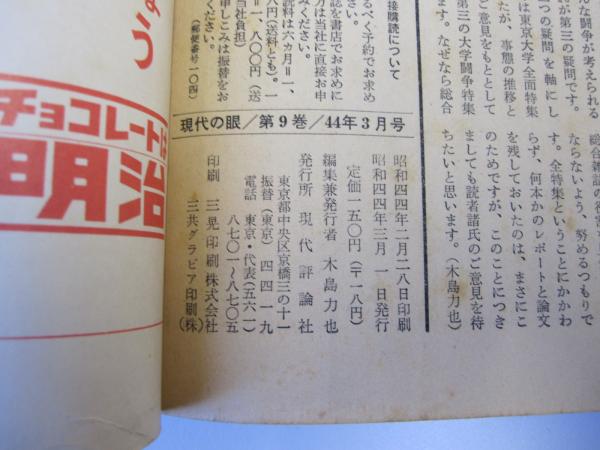 んな闘争が考えられる
が第三の疑問です。
つの疑問を軸にし
は東京大学全面特集
たが、事態の推移と
ご意見をもととして
第三の大学闘争特集
ます。なぜなら総合
総合雑誌の役割
ならないよう、努めるつもりで
す。全特集ということにかかわ
らず、何本かのレポートと論文
を残しておいたのは、まさにこ
のためですが、このことにつき
ましても読者諸氏のご意見を待
ちたいと思います。（木島力也）
接購読について
るべく予約でお求め
誌を書店でお求めに
方は当社に直接お申
ください。
読料は六カ月＝一、
八円（送料とも）。一
＝一、八〇〇円（送
当社負担）
申しこみは振替をお
ください。
（郵便番号一〇四）
現代の眼／第9巻／44年3月号
昭和四四年二月二八日印刷
昭和四四年三月一日発行
定価一五〇円（〒一八円）
編集兼発行者 木島力也
発行所 現代評論社
東京都中央区京橋三の十一
振替（東京）四四一九
電話 東京・代表（五六一）
八七〇一〜八七〇五
印刷 三晃印刷株式会社
三共グラビア印刷（株）
チョコレートは
明治